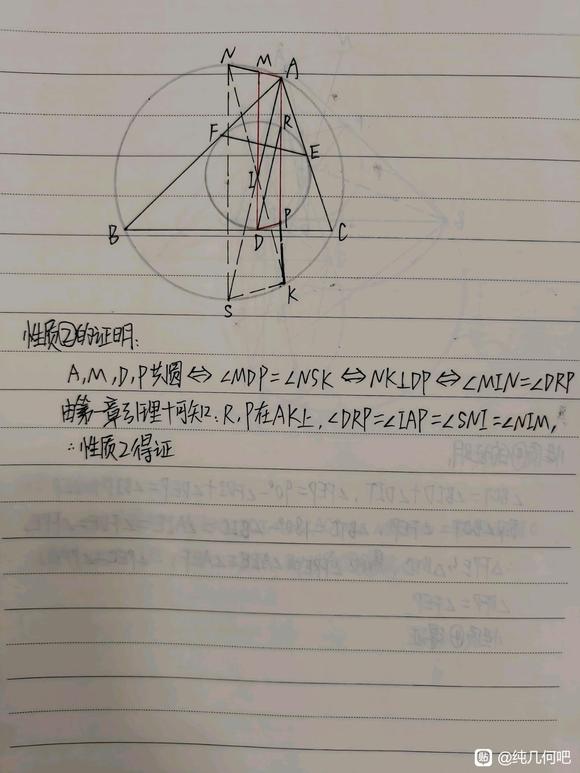 N
M
A
F
R
E
I
B
D
P
C
S
K
性质②的证明:
A,M,D,P共圆⇔∠MDP=∠NSK⇔NK⊥DP⇔∠MIN=∠DRP
由第一章引理十可知:R,P在AK上,∠DRP=∠IAP=∠SNI=∠NIM,
∴性质2得证
贴 @纯几何吧